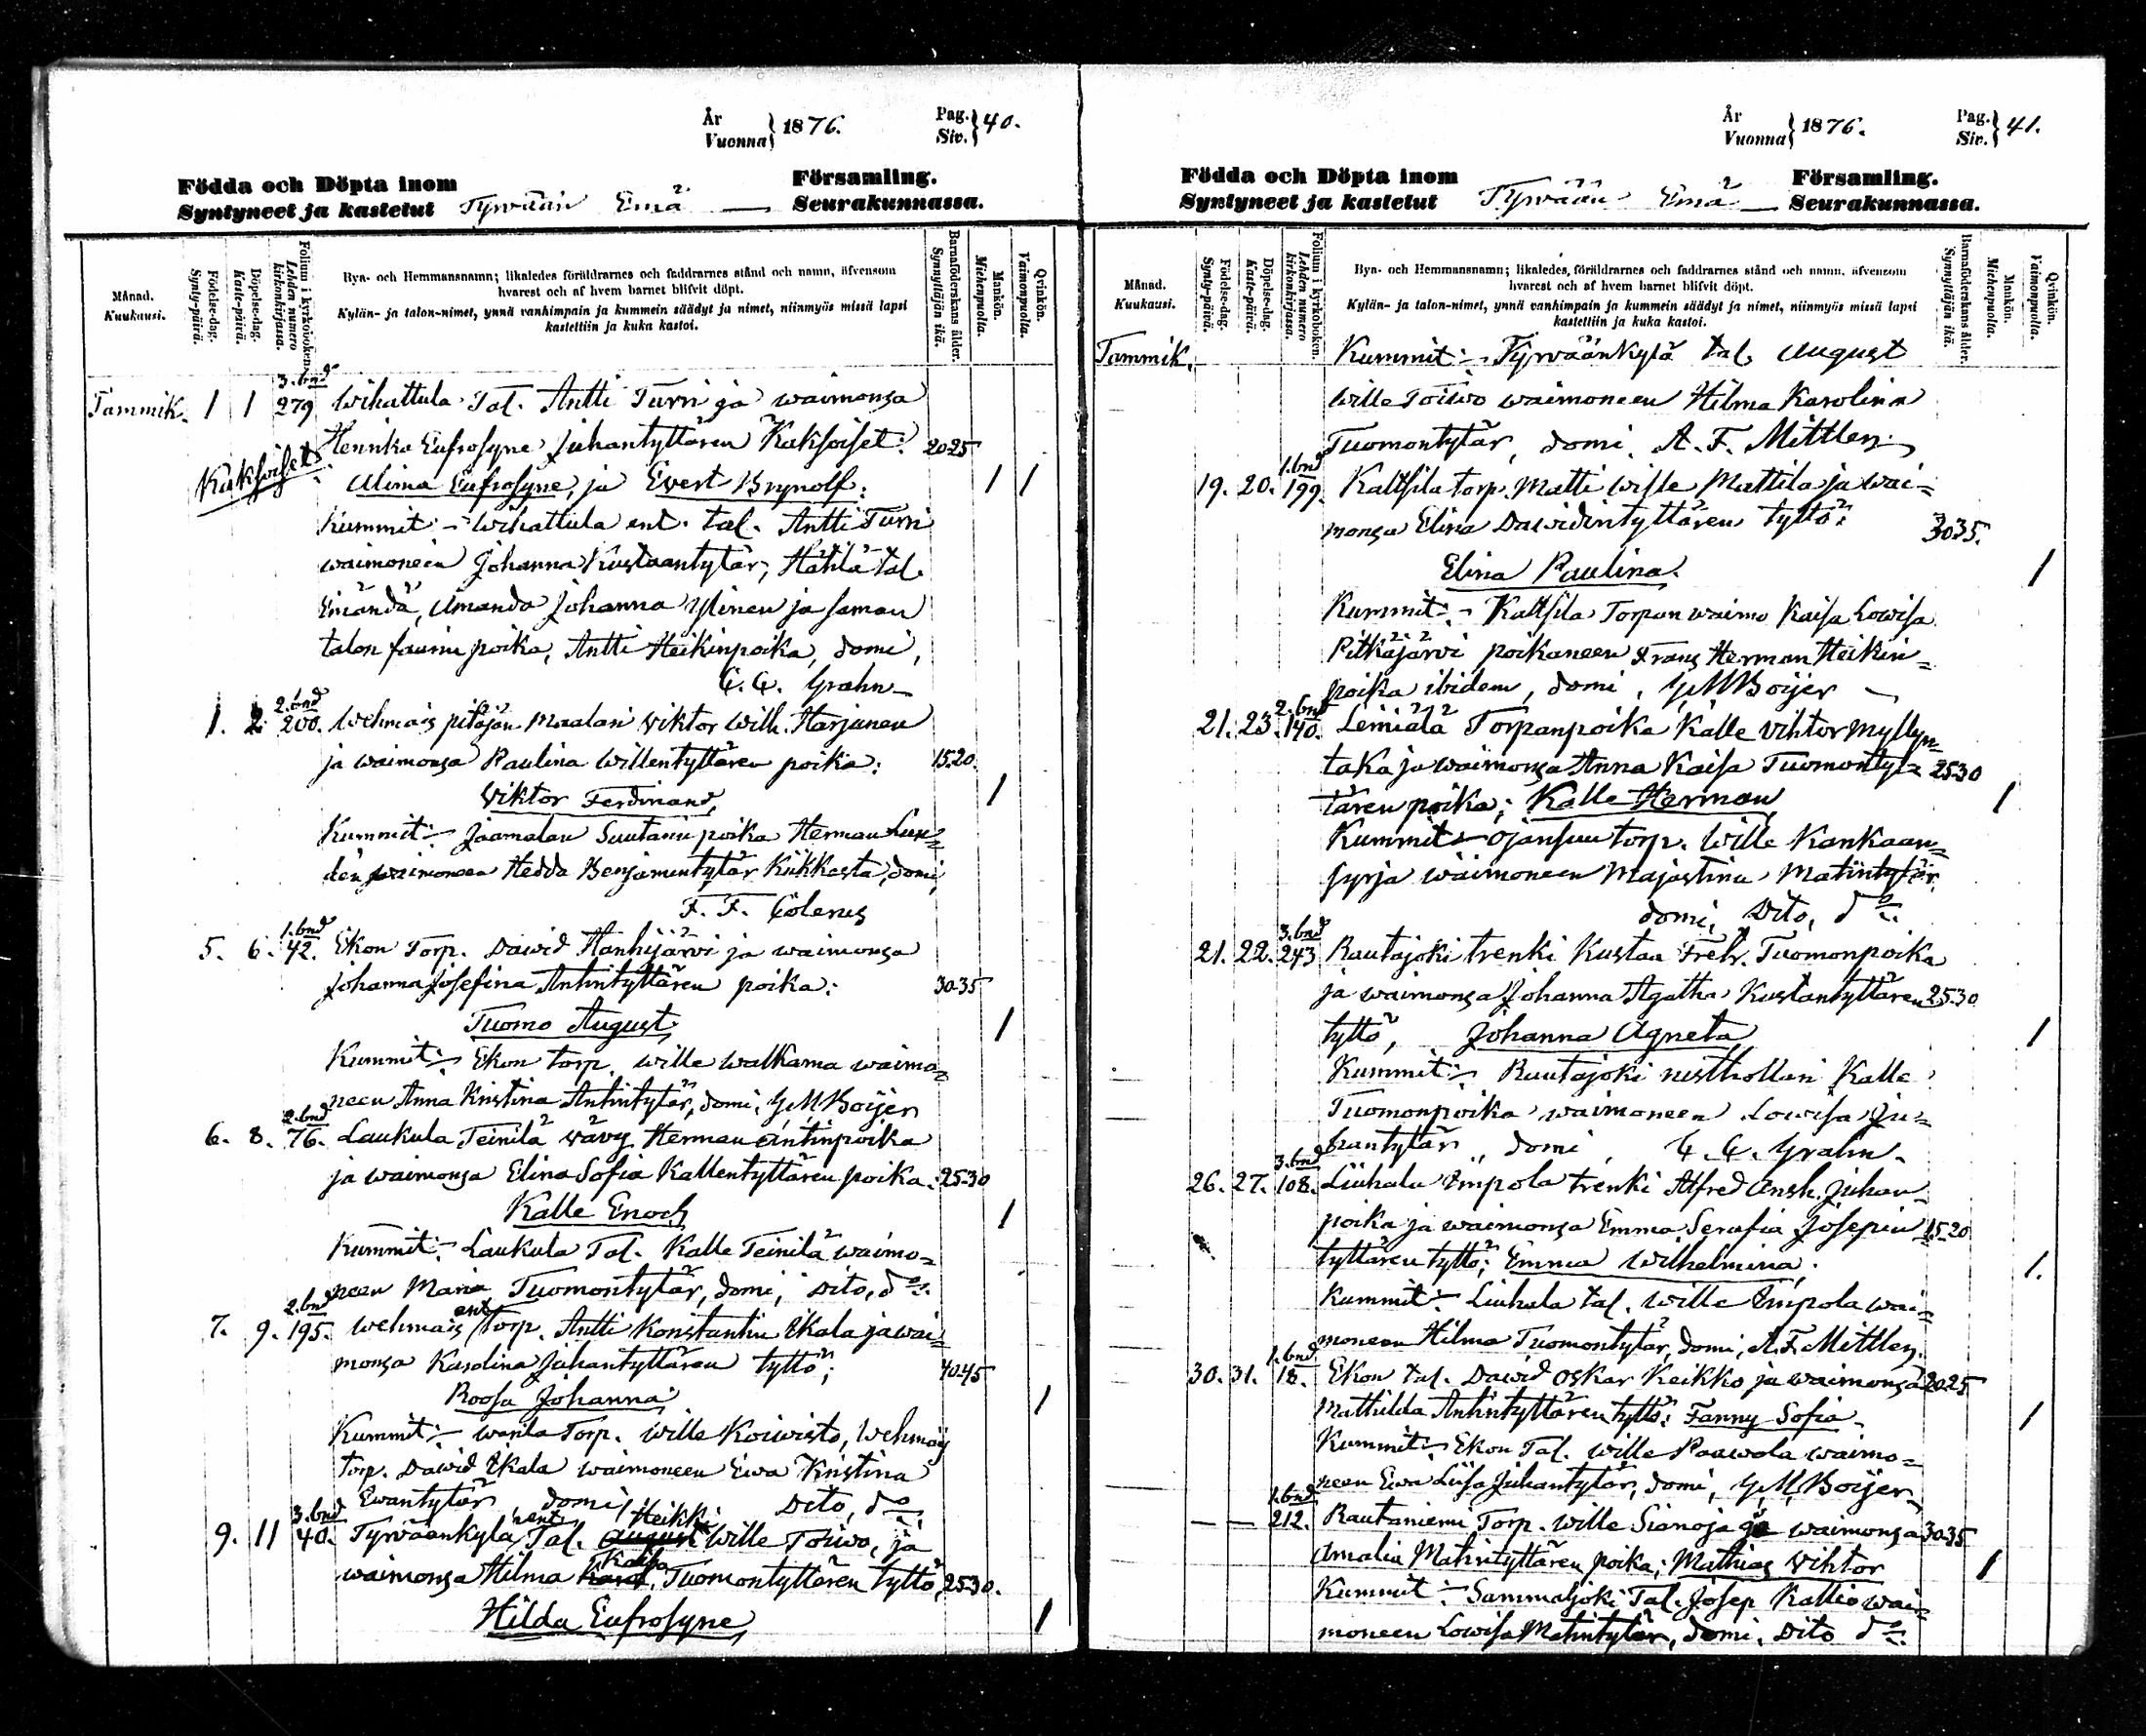 År
Vuonna } 1876.
Pag.
Siv. } 40.
Födda och Döpta inom
Syntyneet ja kastetut Tyrvään Emä — Församling.
Seurakunnassa.
Månad.
Kuukausi.
Födelse-dag.
Synty-päivä.
Döpelse-dag.
Kaste-päivä.
Folium i kyrkoboken.
Lehden numero kirkonkirjassa.
Bya- och Hemmansnamn; likaledes föräldrarnes och faddrarnes stånd och namn, äfvensom
hvarest och af hvem barnet blifvit döpt.
Kylän- ja talon-nimet, ynnä vanhimpain ja kummein säädyt ja nimet, niinmyös missä lapsi
kastettiin ja kuka kastoi.
Barnaföderskans ålder.
Synnyttäjän ikä.
Mankön.
Miehenpuolta.
Qvinkön.
Vaimonpuolta.
3. bnd
Tammik. 1 1 279 Wihattula Tal. Antti Turri ja waimonsa
Henrika Eufrosyne Juhantyttären Kaksoiset: 20-25
Kaksoiset. Alima Eufrosyne, ja Evert Brynolf: 1 1
Kummit:- Wihattula ent. tal. Antti Turri
waimoneen Johanna Kustaantytär; Hähla tal.
Emändä, Amanda Johanna Ylinen ja saman
talon poika, Antti Heikinpoika, domi,
Grahn
2. bnd
1. 2. 200. Wehmais pitäjän maalari Viktor Wilh. Harjunen
ja waimonsa Paulina Willentyttären poika: 15-20.
Viktor Ferdinand, 1
Kummit:- Jaamalan Suutarin poika Herman Lin=
dén waimoneen Hedda Benjamintytär Kiikkasta, domi,
F. F. Colerus
1. bnd
5. 6. 42. Ekon Torp. Dawid Hanhijärvi ja waimonsa
Johanna Josefina Antintyttären poika: 30-35
Tuomo August, 1
Kummit:- Ekon torp. Wille Walkama waimo=
neen Anna Kristina Antintytär, domi, G M Boijer
2. bnd
6. 8. 76. Laukula Teinilä vävy Herman Antinpoika
ja waimonsa Elina Sofia Kallentyttären poika: 25-30
Kalle Enoch 1
Kummit:- Laukula Tal. Kalle Teinilä waimo=
neen Maria Tuomontytär, domi, Dito, do.
2. bnd
ent
7. 9. 195. Wehmais Torp. Antti Konstantin Ekala ja wai=
monsa Karolina Juhantyttären tyttö; 40-45
Roosa Johanna; 1
Kummit:- Torp. Wille Koiwisto, Wehmais
torp. Dawid Ekala waimoneen Ewa Kristina
Ewantytär, domi, Dito, do
3. bnd
Heikki
9. 11 40. Tyrväänkylä Tal. August Wille Toiwo, ja
Kaisa
waimonsa Hilma Karol. Tuomontyttären tyttö, 25-30.
Hilda Eufrosyne, 1
År
Vuonna } 1876.
Pag.
Siv. } 41.
Födda och Döpta inom
Syntyneet ja kastetut Tyrvään Emä — Församling.
Seurakunnassa.
Månad.
Kuukausi.
Födelse-dag.
Synty-päivä.
Döpelse-dag.
Kaste-päivä.
Folium i kyrkoboken.
Lehden numero kirkonkirjassa.
Bya- och Hemmansnamn; likaledes, föräldrarnes och faddrarnes stånd och namn, äfvensom
hvarest och af hvem barnet blifvit döpt.
Kylän- ja talon-nimet, ynnä vanhimpain ja kummein säädyt ja nimet, niinmyös missä lapsi
kastettiin ja kuka kastoi.
Barnaföderskans ålder.
Synnyttäjän ikä.
Mankön.
Miehenpuolta.
Qvinkön.
Vaimonpuolta.
Tammik. Kummit:- Tyrväänkylä tal. August
Wille Toiwo waimoneen Hilma Karolina
Tuomontytär, domi, A. F. Mittler,
1. bnd
19. 20. 199. Kaltsila torp. Matti Wille Mattila ja wai=
monsa Elina Dawidintyttären tyttö: 30-35.
Elina Paulina. 1
Kummit:- Kaltsila Torpan waimo Kaisa Lowisa
Pitkäjärvi poikaneen Frans Herman Heikin=
poika ibidem, domi, G M Boijer
2. bnd
21. 23. 140. Leiniälä Torpanpoika Kalle Vihtor Myllyn=
taka ja waimonsa Anna Kaisa Tuomontyt= 25-30
tären poika; Kalle Herman, 1
Kummit- Ojansuu torp. Wille Kankaan=
syrjä waimoneen Majastina Matintytär,
domi, Dito, do.
3. bnd
21. 22. 243 Rautajoki trenki Kustaa Fredr. Tuomonpoika
ja waimonsa Johanna Agatha Kustantyttären 25-30
tyttö, Johanna Agneta, 1
Kummit:- Rautajoki rusthollari Kalle
Tuomonpoika waimoneen Lowisa Ju=
hantytär, domi, Grahn.
3. bnd
26. 27. 108. Liuhala Impola trenki Alfred Ansh. Juhan=
poika ja waimonsa Emma Serafia Josepin 15-20
tyttären tyttö; Emma Wilhelmina. 1.
Kummit:- Liuhala tal. Wille Impola wai=
moneen Hilma Tuomontytär, domi, A. F. Mittler.
1. bnd.
30. 31. 18. Ekon tal. Dawid Oskar Keikko ja waimonsa 20-25
Mathilda Antintyttären tyttö: Fanny Sofia 1
Kummit:- Ekon Tal. Wille Paawola waimo=
neen Ewa Liisa Juhantytär, domi, G. M. Boijer
1. bnd
— — 212. Rautaniemi Torp. Wille Sianoja ja waimonsa 30-35
Amalia Matintyttären poika; Mathias Vihtor 1
Kummit:- Sammaljoki Tal. Josep Kallio wai=
moneen Lowisa Matintytär, domi, Dito do.